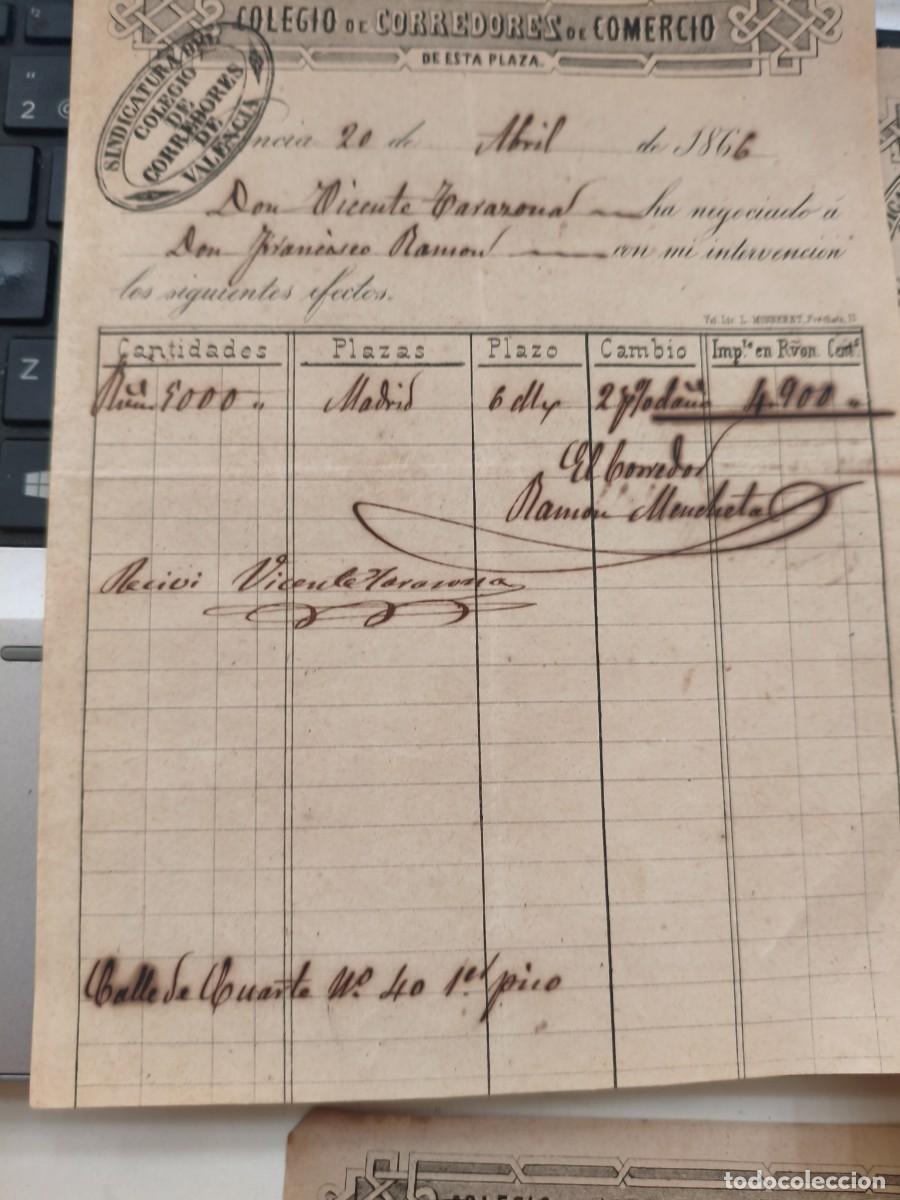 COLEGIO DE CORREDORES DE COMERCIO
DE ESTA PLAZA.
SINDICATURA DEL
COLEGIO
DE
CORREDORES
DE
VALENCIA
encia 20 de Abril de 1866
Don Vicente Tarazona ha negociado á
Don Francisco Ramon con mi intervencion
los siguientes efectos.
Cantidades Plazas Plazo Cambio Imp.te en Rvon. Cent.s
Rvn. 5000 Madrid 6 d/v 2 p% daño 4.900
El Corredor
Ramon Mencheta
Recivi Vicente Tarazona
Calle de Cuarte Nº 40 1er piso
COLEGIO
todocoleccion